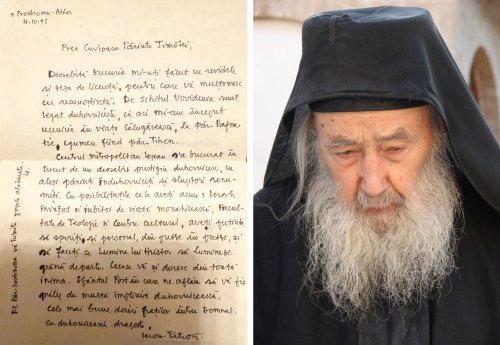 + Prodromu - Athos
4.III.95
Prea Cuvioase Părinte Timotei,
Deosebită bucurie mi-ați făcut cu revistele
și teza de licență, pentru care vă mulțumesc
cu recunoștință. De Schitul Vovidenia sunt
legat duhovnicește, că aci mi-am început
ucenicia în viața călugărească, la păr. Pafnu-
tie, egumen fiind păr. Tihon.
Centrul mitropolitan Ieșean s'a bucurat în
trecut de un deosebit prestigiu duhovnicesc, cu
aleși părinți induhovniciți și slujitori renu-
miți. Cu posibilitățile ce le aveți acum 1 Ierarh
învățat și iubitor de viață monahicească, Facul-
tate de Teologie și Centru cultural, aveți putință
să sporiți și personal, din putere în putere, și
să faceți ca Lumina lui Hristos să lumineze
până departe. Ceea ce vă și doresc din toată
inima. Sfântul Post în care ne aflăm să vă fie
prilej de multă împlinire duhovnicească.
Cele mai bune doriri fraților întru Domnul.
cu duhovnicească dragoste,
Ierom. Petroniu
Păr. Iustinian vă trimite grupul alăturat.